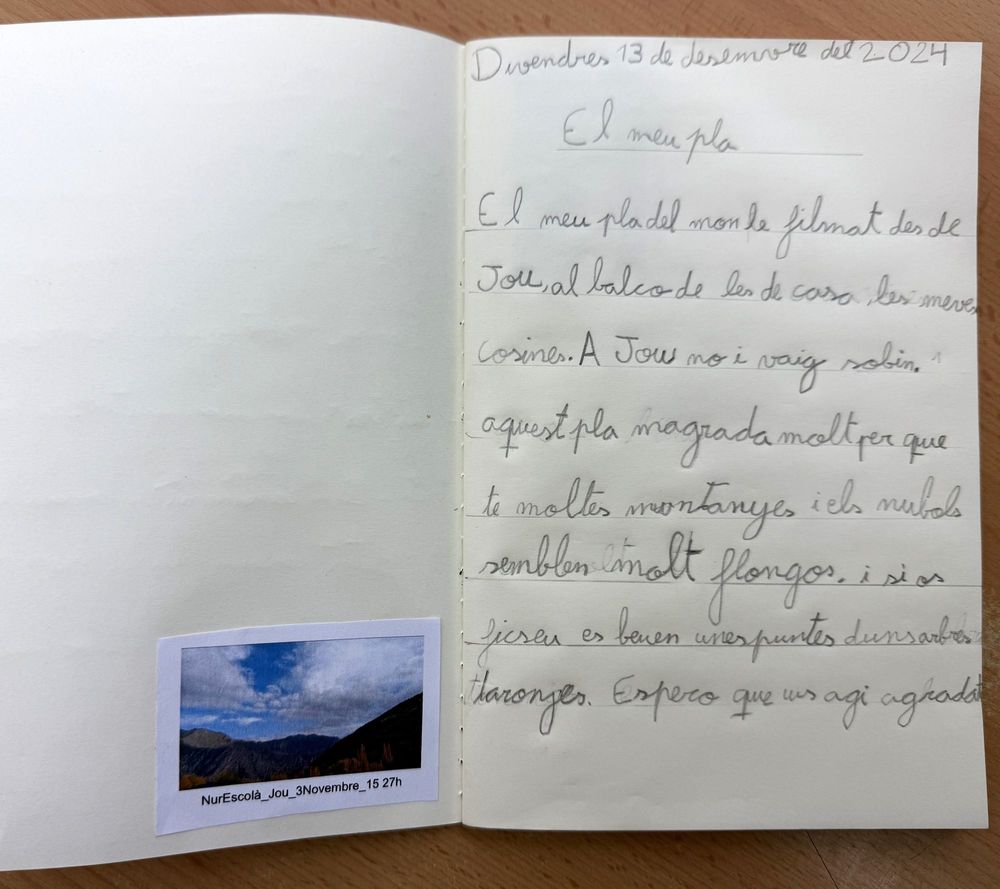 Divendres 13 de desemvre del 2.024
El meu pla
El meu pla del mon le filmat des de
Jou, al balco de les de casa, les meves
cosines. A Jou no i vaig sobin.
aquest pla magrada molt per que
te moltes montanyes i els nubols
semblen molt flongos. i si os
ficseu es beuen unes puntes duns arbres
taronjes. Espero que us agi agradat
NurEscolà_Jou_3Novembre_15 27h